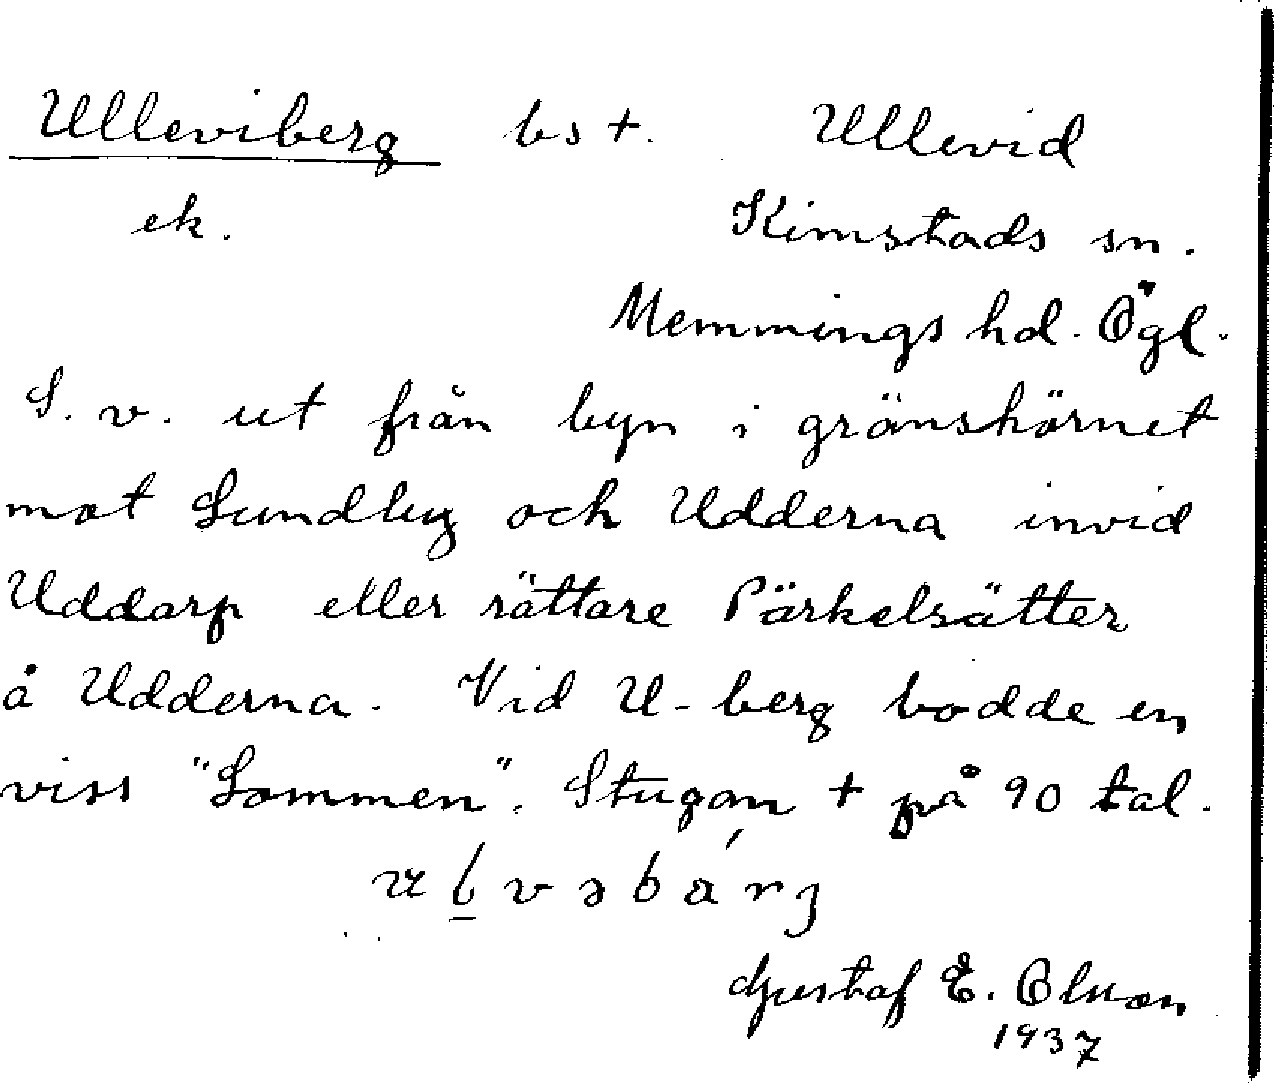 Ulleviberg bs +. Ullevid
ek. Kimstads sn.
Memmings hd. Ögl.
S. v. ut från byn i gränshörnet
mot Sundby och Udderna invid
Uddarp eller rättare Pärkelsätter
å Udderna. Vid U-berg bodde en
viss "Sommen". Stugan + på 90 tal.
Gustaf E. Olsson
1937